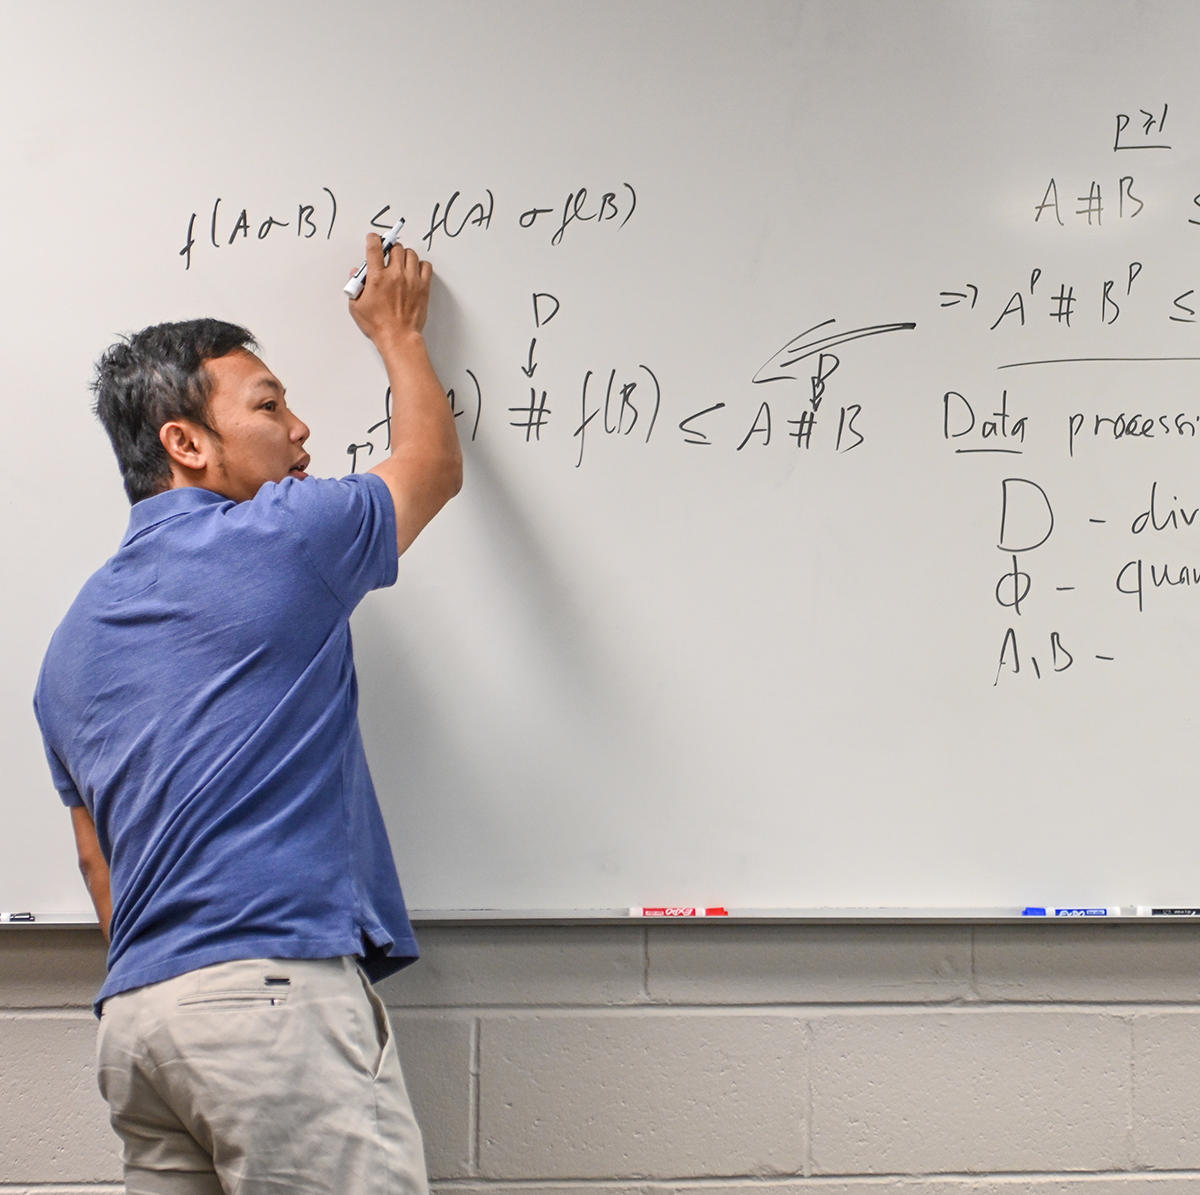 f(A σ B) ≤ f(A) σ f(B)
D
f(A) # f(B) ≤ A # B
D
p ≥ 1
A # B ≤
⇒ A^p # B^p ≤
Data processi
D - div
Φ - quan
A, B -
EXPO
EXPO